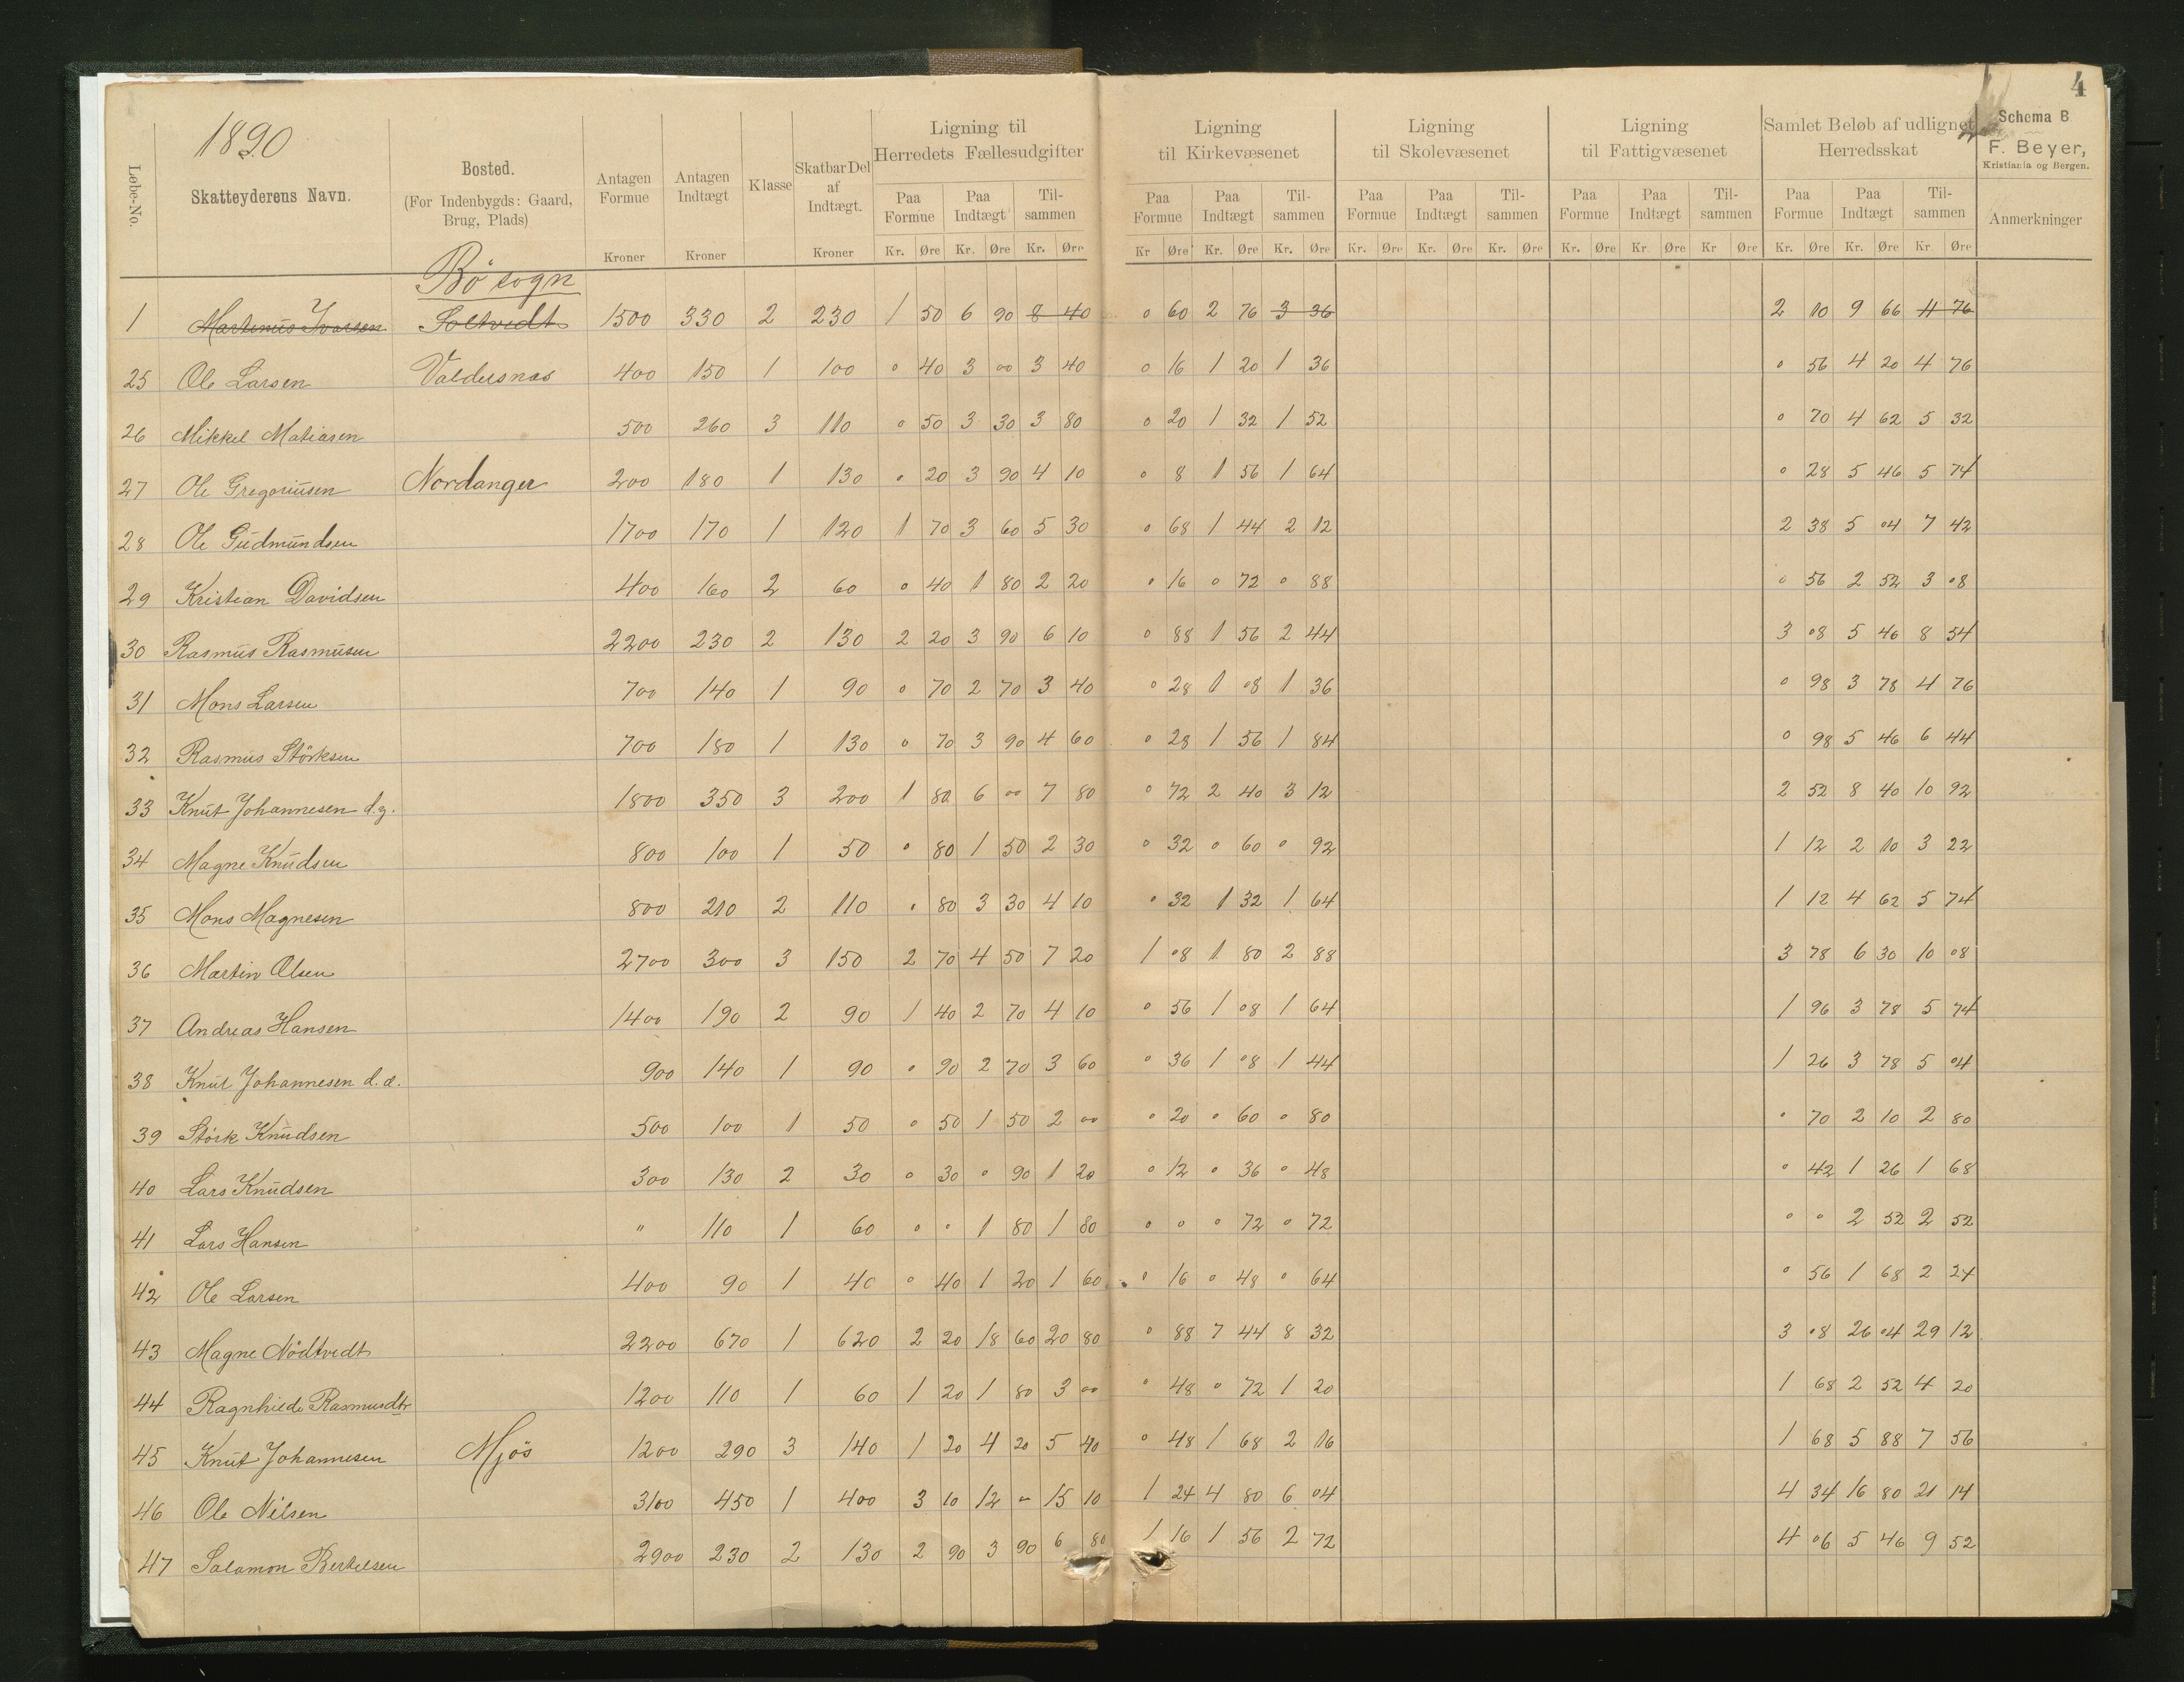 4
1890
Løbe-No.
Skatteyderens Navn.
Bosted.
(For Indenbygds: Gaard,
Brug, Plads)
Antagen
Formue
Kroner
Antagen
Indtægt
Kroner
Klasse
Skatbar Del
af
Indtægt.
Kroner
Ligning til
Herredets Fællesudgifter
Paa Formue Paa Indtægt Til-sammen
Kr. Øre Kr. Øre Kr. Øre
Ligning
til Kirkevæsenet
Paa Formue Paa Indtægt Til-sammen
Kr Øre Kr. Øre Kr. Øre
Ligning
til Skolevæsenet
Paa Formue Paa Indtægt Til-sammen
Kr. Øre Kr. Øre Kr. Øre
Ligning
til Fattigvæsenet
Paa Formue Paa Indtægt Til-sammen
Kr. Øre Kr. Øre Kr Øre
Samlet Beløb af udlignet
Herredsskat
Paa Formue Paa Indtægt Til-sammen
Kr. Øre Kr. Øre Kr. Øre
Schema B
F. Beyer,
Kristiania og Bergen.
Anmerkninger
Bö sogn
1 Martinus Ivarsen Soltvedt 1500 330 2 230 1 50 6 90 8 40 0 60 2 76 3 36 2 10 9 66 11 76
25 Ole Larsen Valdersnes 400 150 1 100 0 40 3 00 3 40 0 16 1 20 1 36 0 56 4 20 4 76
26 Mikkel Matiasen 500 260 3 110 0 50 3 30 3 80 0 20 1 32 1 52 0 70 4 62 5 32
27 Ole Gregoriusen Nordanger 200 180 1 130 0 20 3 90 4 10 0 8 1 56 1 64 0 28 5 46 5 74
28 Ole Gudmundsen 1700 170 1 120 1 70 3 60 5 30 0 68 1 44 2 12 2 38 5 04 7 42
29 Kristian Davidsen 400 160 2 60 0 40 1 80 2 20 0 16 0 72 0 88 0 56 2 52 3 08
30 Rasmus Rasmusen 2200 230 2 130 2 20 3 90 6 10 0 88 1 56 2 44 3 08 5 46 8 54
31 Mons Larsen 700 140 1 90 0 70 2 70 3 40 0 28 1 08 1 36 0 98 3 78 4 76
32 Rasmus Störksen 700 180 1 130 0 70 3 90 4 60 0 28 1 56 1 84 0 98 5 46 6 44
33 Knut Johannesen d.y. 1800 350 3 200 1 80 6 00 7 80 0 72 2 40 3 12 2 52 8 40 10 92
34 Magne Knudsen 800 100 1 50 0 80 1 50 2 30 0 32 0 60 0 92 1 12 2 10 3 22
35 Mons Magnesen 800 210 2 110 0 80 3 30 4 10 0 32 1 32 1 64 1 12 4 62 5 74
36 Martin Olsen 2700 300 3 150 2 70 4 50 7 20 1 08 1 80 2 88 3 78 6 30 10 08
37 Andreas Hansen 1400 190 2 90 1 40 2 70 4 10 0 56 1 08 1 64 1 96 3 78 5 74
38 Knut Johannesen d.æ. 900 140 1 90 0 90 2 70 3 60 0 36 1 08 1 44 1 26 3 78 5 04
39 Störk Knudsen 500 100 1 50 0 50 1 50 2 00 0 20 0 60 0 80 0 70 2 10 2 80
40 Lars Knudsen 300 130 2 30 0 30 0 90 1 20 0 12 0 36 0 48 0 42 1 26 1 68
41 Lars Hansen " 110 1 60 0 0 1 80 1 80 0 0 0 72 0 72 0 0 2 52 2 52
42 Ole Larsen 400 90 1 40 0 40 1 20 1 60 0 16 0 48 0 64 0 56 1 68 2 24
43 Magne Nödtvedt 2200 670 1 620 2 20 18 60 20 80 0 88 7 44 8 32 3 08 26 04 29 12
44 Ragnhilde Rasmusdtr 1200 110 1 60 1 20 1 80 3 00 0 48 0 72 1 20 1 68 2 52 4 20
45 Knut Johannesen Mjös 1200 290 3 140 1 20 4 20 5 40 0 48 1 68 2 16 1 68 5 88 7 56
46 Ole Nilsen 3100 450 1 400 3 10 12 00 15 10 1 24 4 80 6 04 4 34 16 80 21 14
47 Salamon Bertelsen 2900 230 2 130 2 90 3 90 6 80 1 16 1 56 2 72 4 06 5 46 9 52